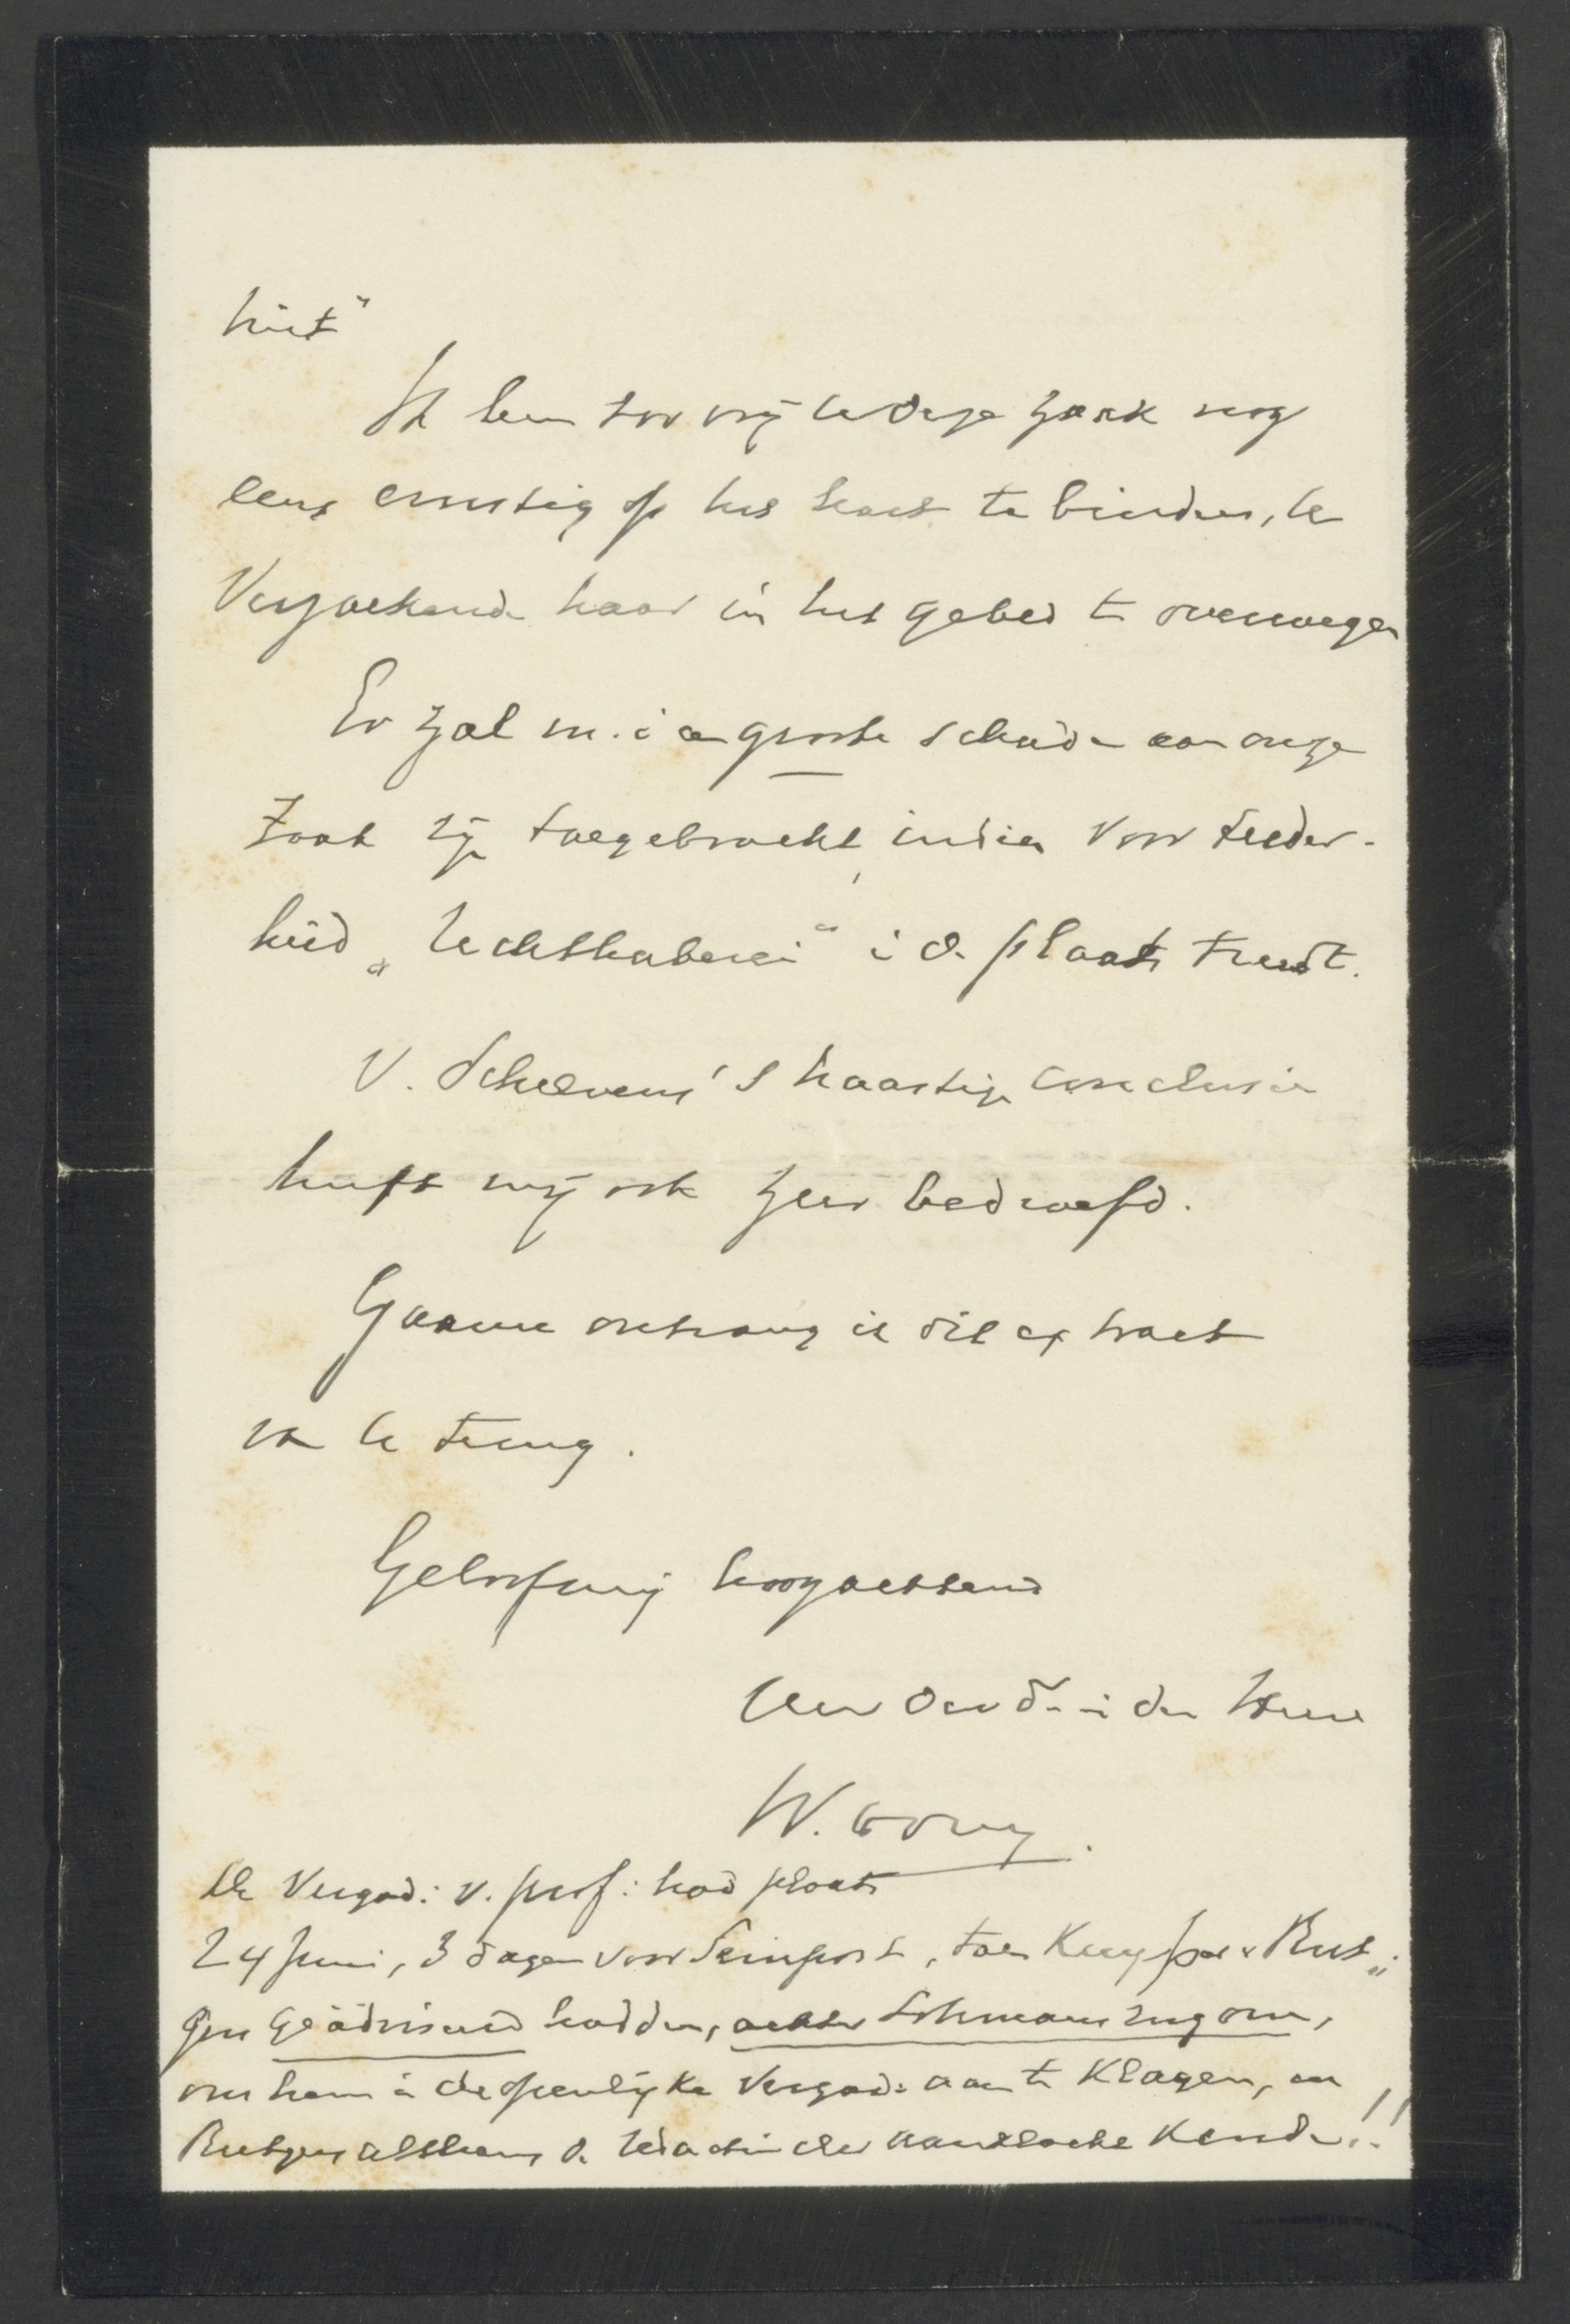 niet"
Ik ben zoo vrij U deze zaak nog
eens ernstig op het hart te binden, U
verzoekende haar in het gebed te overwegen
Er zal m.i. een groote schade aan onze
zaak zijn toegebracht, indien voor teeder-
heid „rechthaberei" i d. plaats treedt.
V. Schelven's haastige conclusie
heeft mij ook zeer bedroefd.
Gaarne ontvang ik dit extract
van U terug.
Geloof mij hoogachtend
Uw
in den Heere
W. Hovy.
De Vergad: v. prof: had plaats
24 Juni, 3 dagen voor Seinpost, toen Kuyper & Rut„
gers geädviseerd hadden, achter Lohmans rug om,
om hem in de openlijke Vergad: aan te klagen, en
Rutgers althans d.
der aanklacht kende!!